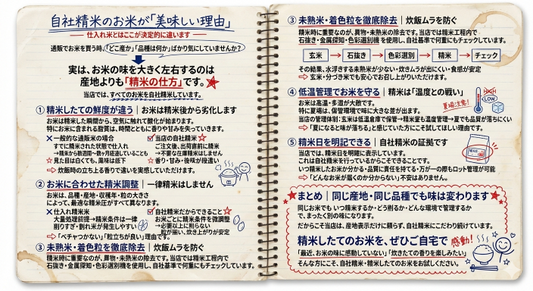 自社精米のお米が「美味しい理由」
仕入れ米とはここが決定的に違います
通販でお米を買う時、「どこ産か」「品種は何か」ばかり気にしていませんか？
実は、お米の味を大きく左右するのは
産地よりも「精米の仕方」です。
当店では、すべてのお米を自社精米しています。
① 精米したての鮮度が違う｜お米は精米後から劣化します
お米は精米した瞬間から、空気に触れて酸化が始まります。
特にお米に含まれる脂質は、時間とともに香りや甘みを失っていきます。
×一般的な通販米の場合
すでに精米された状態で仕入れ
☆見た目は白くても、風味は低下
☑当店の自社精米
ご注文後、出荷直前に精米
☆香り・甘み・後味が段違い
⇒ 炊飯時の立ち上る香りで違いを実感いただけます。
② お米に合わせた精米調整｜一律精米はしません
お米は、品種・産地・収穫年・粒の大きさ
によって、最適な精米圧がすべて異なります。
×仕入れ精米
大量処理前提→精米条件は一律
割りすぎ・割れ・芽が発生しやすい
☑自社精米だからできること
お米ごとに精米条件を微調整
→必要以上に削らない
粒が揃い、炊き上がりが安定
⇒「ベチャつかない」「粒立ちが良い」理由です。
③ 未熟米・着色粒を徹底除去｜炊飯ムラを防ぐ
精米時に重要なのが、異物・未熟米の除去です。当店では精米工程内で
石抜き・金属探知・色彩選別機を使用し、自社基準で何重にもチェックしています。
③ 未熟米・着色粒を徹底除去｜炊飯ムラを防ぐ
精米時に重要なのが、異物・未熟米の除去です。当店では精米工程内で
石抜き・金属探知・色彩選別機を使用し、自社基準で何重にもチェックしています。
玄米 → 石抜き → 色彩選別 → 精米 → チェック
その結果、水浮きする未熟米が少ない・炊きムラが出にくい・食感が安定
⇒ 玄米・分づき米でも安心でお召し上がりいただけます。
④ 低温管理でお米を守る｜精米は「温度との戦い」
お米は高温・多湿が大敵です。
特に夏場は、保管環境で味に大きな差が出ます。
当店の管理体制：玄米は低温倉庫で保管→精米室も温度管理→夏でも品質が落ちにくい
⇒「夏になると味が落ちる」と感じていた方にこそ試してほしい理由です。
⑤ 精米日を明記できる｜自社精米の証拠です
当店では、精米日を明確に表示しています。
これは自社精米を行っているからこそできることです。
いつ精米したか分かる・品質に責任を持てる・万が一の際もロット管理が可能
⇒「どんなお米が届くのか分からない」不安はありません。
まとめ｜同じ産地・同じ品種でも味は変わります
同じお米でも いつ精米するか・どう削るか・どんな環境で管理するか
で、まったく別の味になります。
だからこそ当店は、産地表示だけに頼らず、自社精米にこだわり続けています。
精米したてのお米を、ぜひご自宅で
感動！
「最近、お米の味に感動していない」「炊きたての香りを楽しみたい」
そんな方にこそ、自社精米・精米したてのお米をお試しください。